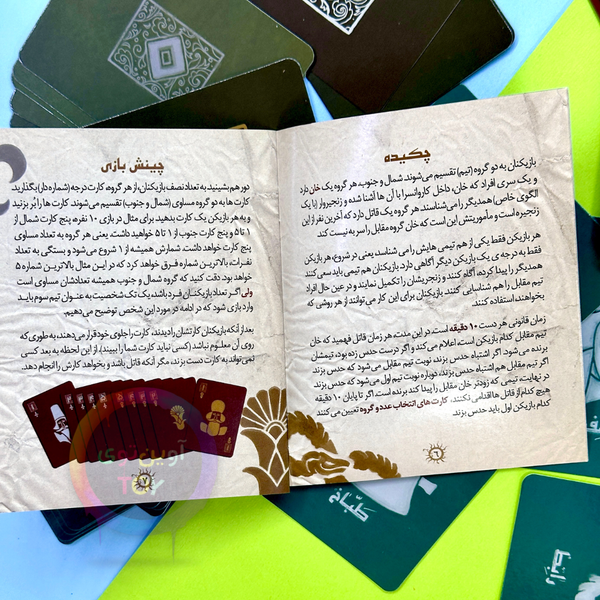 چکیده
بازیکنان به دو گروه (تیم) تقسیم می‌شوند. شمال و جنوب. هر گروه یک خان دارد
و یک سری افراد که خان، داخل کاروانسرا با آن ها آشنا شده و زنجیروار (با یک
الگوی خاص) همدیگر را می‌شناسند. هر گروه یک قاتل دارد که آخرین نفر از این
زنجیره است و مأموریتش این است که خان گروه مقابل را سر به نیست کند.
هر بازیکن فقط یکی از هم تیمی هایش را می شناسد یعنی در شروع، هر بازیکن
فقط به درجه ی یک بازیکن دیگر آگاهی دارد. بازیکنان هم تیمی باید سعی کنند
همدیگر را پیدا کرده، آگاه کنند و زنجیرشان را تکمیل نمایند و در عین حال افراد
تیم مقابل را هم شناسایی کنند. بازیکنان برای این کار می توانند از هر روشی که
بخواهند، استفاده کنند.
زمان قانونی هر دست ۱۰ دقیقه است. در این مدت، هر زمان قاتل فهمید که خان
تیم مقابل کدام بازیکن است، اعلام می‌کند و اگر درست حدس زده بود، تیمشان
برنده می شود. اگر اشتباه حدس بزند نوبت تیم مقابل می شود که حدس بزند
اگر تیم مقابل هم اشتباه حدس بزند، دوباره نوبت تیم اول می شود که حدس بزند
در نهایت، تیمی که زودتر خان مقابل را پیدا کند برنده است. اگر تا پایان ۱۰ دقیقه
هیچ کدام از قاتل ها اقدامی نکنند، کارت های انتخاب عدد و گروه تعیین می کنند
کدام بازیکن اول باید حدس بزند.
۶
چینش بازی
دور هم بشینید به تعداد نصف بازیکنان، از هر گروه، کارت درجه (شماره دار) بگذارید.
کارت ها به دو گروه مساوی (شمال و جنوب) تقسیم می‌شوند. کارت ها را بُر بزنید
و به هر بازیکن یک کارت بدهید. برای مثال در بازی ۱۰ نفره، پنج کارت شمال از
۱ تا ۵ و پنج کارت جنوب از ۱ تا ۵ خواهید داشت. یعنی هر گروه به تعداد مساوی
کارت خواهد داشت. شمارش همیشه از ۱ شروع می‌شود و بستگی به تعداد
نفرات، بالاترین شماره فرق خواهد کرد که در این مثال بالاترین شماره ۵
خواهد بود. دقت کنید که گروه شمال و جنوب همیشه تعدادشان مساوی است
ولی اگر تعداد بازیکنان فرد باشد، یک تک شخصیت به عنوان تیم سوم باید
وارد بازی شود که در ادامه در مورد این شخص توضیح می‌دهیم.
بعد از آنکه بازیکنان کارتشان را دیدند، کارت را جلوی خود قرار می‌دهند، به طوری که
روی آن معلوم نباشد (کسی نباید کارت شما را ببیند). از این لحظه به بعد کسی
نمی‌تواند به کارت دست بزند، مگر آنکه قاتل باشد و بخواهد کارش را انجام دهد.
۷
آوین توی
TOY
طبّاخ